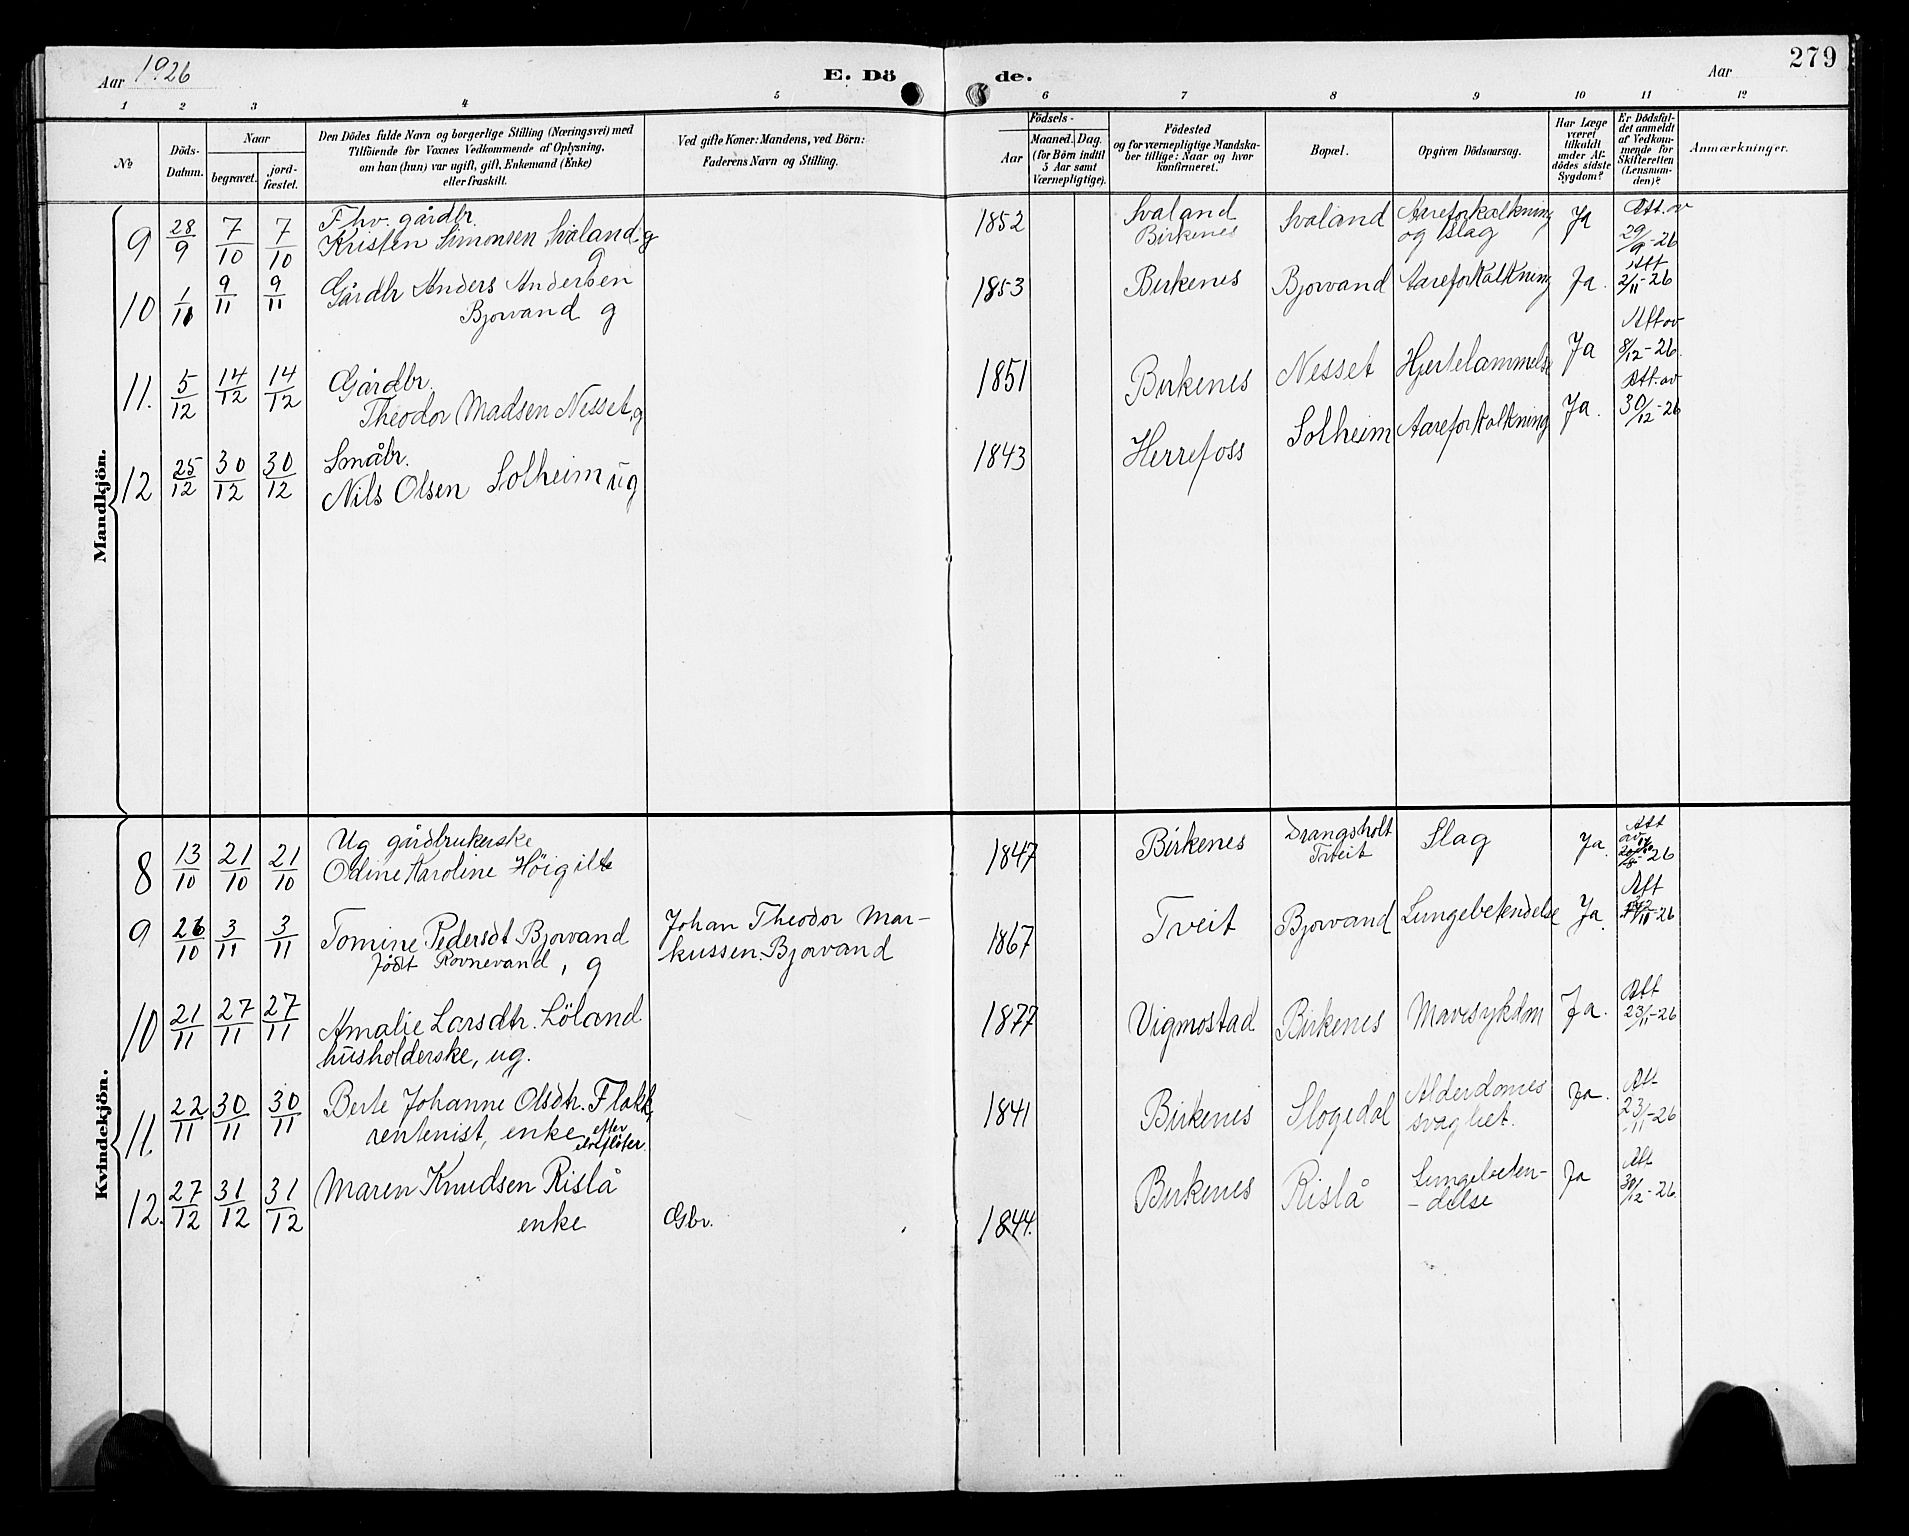 Aar 1926
E. Dö de.
Aar
279
1 2 3 4 5 6 7 8 9 10 11 12
No
Döds-
Datum.
Naar
begravet.
jord-
fæstet.
Den Dödes fulde Navn og borgerlige Stilling (Næringsvei) med
Tilföiende for Voxnes Vedkommende af Oplysning,
om han (hun) var ugift, gift, Enkemand (Enke)
eller fraskilt.
Ved gifte Koner: Mandens, ved Börn:
Faderens Navn og Stilling.
Födsels-
Aar
Maaned.
Dag.
(for Börn indtil
5 Aar samt
Værnepligtige).
Födested
og for værnepligtige Mandska-
ber tillige: Naar og hvor
konfirmeret.
Bopæl.
Opgiven Dödsaarsag.
Har Læge
været
tilkaldt
under Af-
dödes sidste
Sygdom?
Er Dödsfal-
det anmeldt
af Vedkom-
mende for
Skifteretten
(Lensman-
den)?
Anmærkninger.
Mandkjön.
9 28/9 7/10 7/10 Fhv. gårdbr.
Kristen Simonsen Svaland g
g
1852 Svaland
Birkenes
Svaland Aareforkalkning
og slag
Ja Att. av
29/9-26
10 1/11 9/11 9/11 Gårdbr Anders Andersen
Bjorvand g
1853 Birkenes Bjorvand Aareforkalkning Ja. Att
2/11-26
11. 5/12 14/12 14/12 Gårdbr.
Theodor Madsen Nesset, g
1851 Birkenes Nesset Hjertelammelse Ja Att av
8/12-26.
12 25/12 30/12 30/12 Småbr.
Nils Olsen Solheim ug
1843 Herrefoss Solheim Aareforkalkning Ja. Att. av
30/12-26
Kvindekjön.
8 13/10 21/10 21/10 Ug gårdbrukerske
Odine Karoline Höigilt
1847 Birkenes Drangsholt
Tveit
Slag Ja. Att
av
26
9 26/10 3/11 3/11 Tomine Pedersdt Bjorvand
født Rovnevand, g
Johan Theodor Mar-
kussen Bjorvand
1867 Tveit Bjorvand Lungebetendelse Ja. Att
/11-26
10 21/11 27/11 27/11 Amalie Larsdtr. Löland
husholderske, ug.
1877 Vigmostad Birkenes Mavesykdm Ja. Att
23/11-26
11. 22/11 30/11 30/11 Berte Johanne Olsdtr. Flakk,
rentenist, enke efter
elvefløter.
1841 Birkenes Slogedal Alderdomes
svaghet.
Ja. Att
23/11-26
12. 27/12 31/12 31/12 Maren Knudsen Rislå
enke
Gbr.
1844. Birkenes Rislå Lungebeten-
-delse
Ja Att
30/12-26.